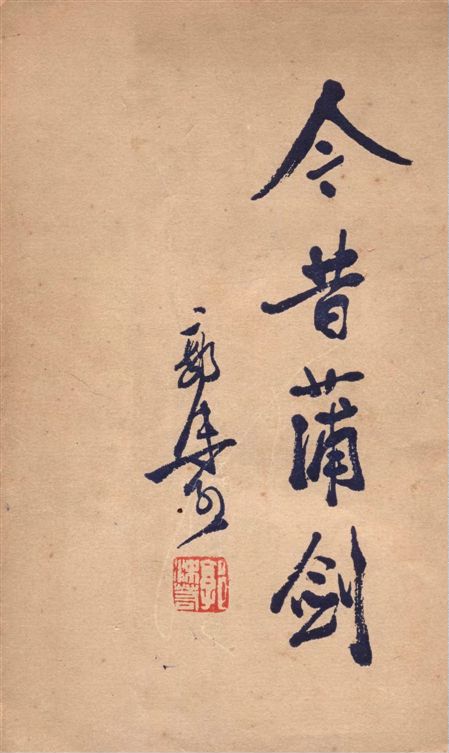 今昔蒲剑
郭沫若
郭沫若